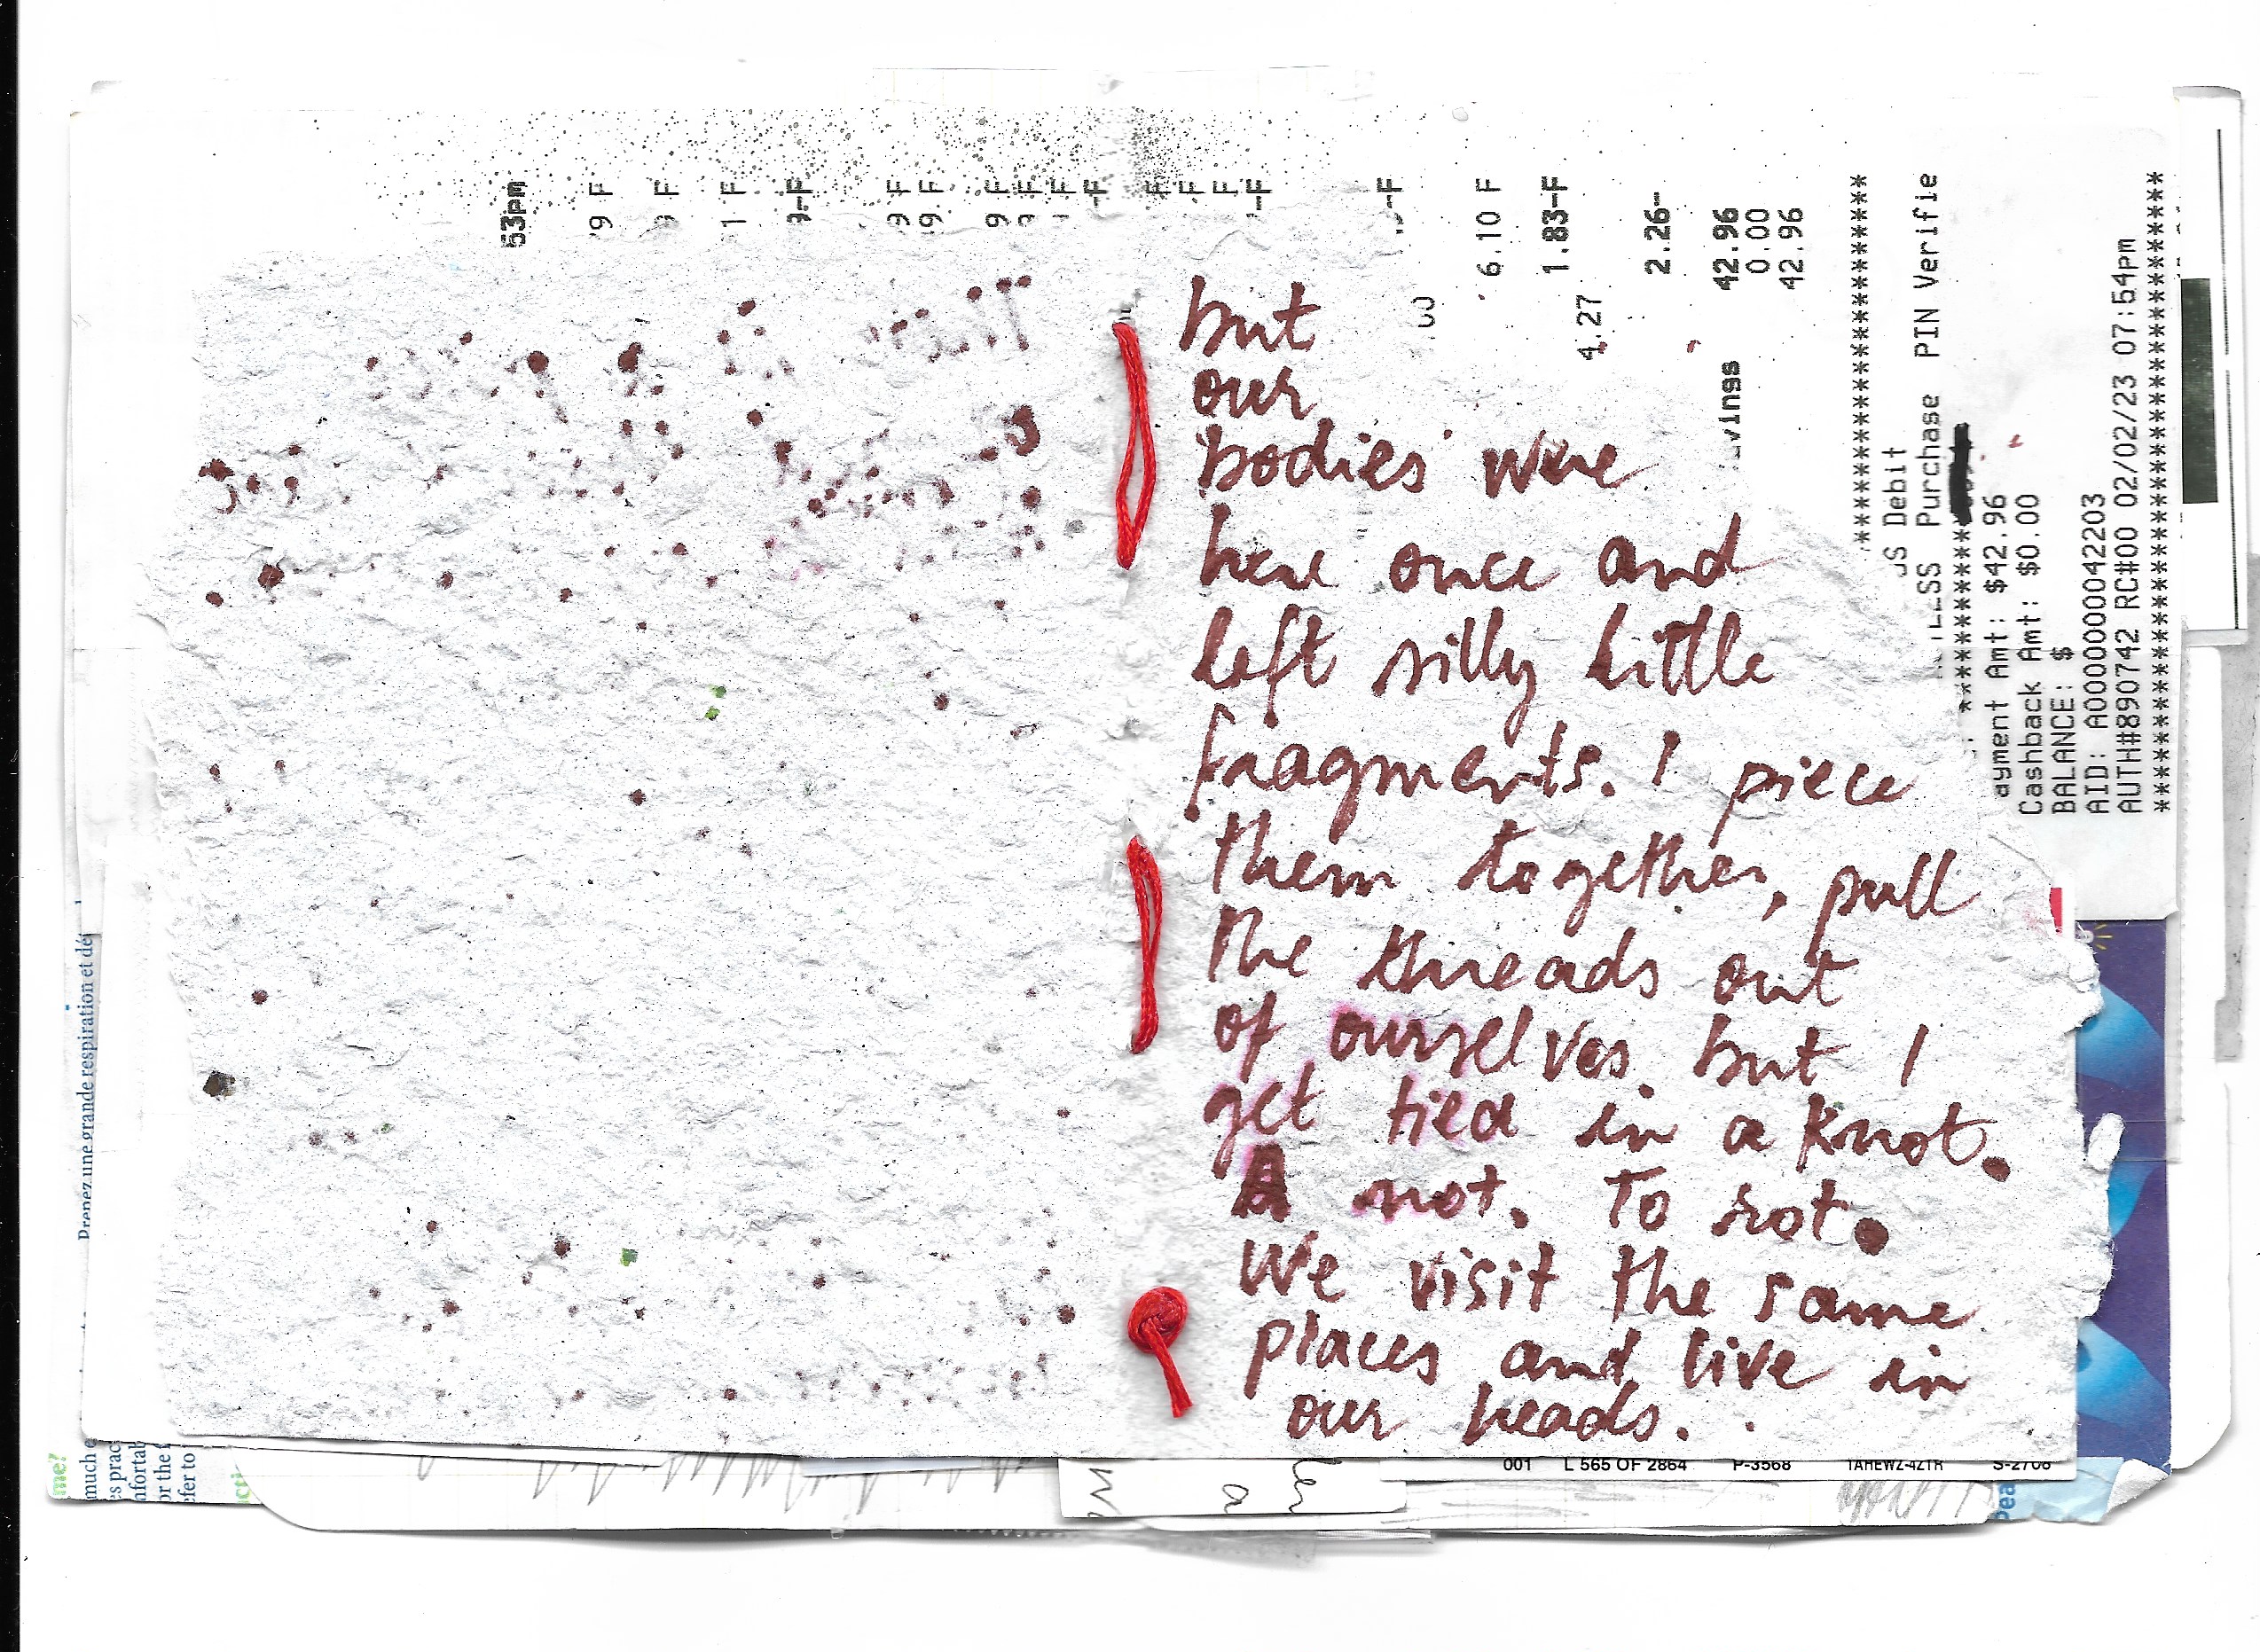 but
our
bodies were
here once and
left silly little
fragments. I piece
them together, pull
the threads out
of ourselves. but I
get tied in a knot.
A not. To rot.
We visit the same
places and live in
our heads.
53pm
9 F
9 F
1 F
9-F
9 F
9 F
9 F
9 F
F
-F
F
F
F
-F
-F
6.10 F
1.83-F
4.27
2.26-
42.96
0.00
42.96
vings
**************************
SS Debit
Purchase PIN Verifie
ayment Amt: $42.96
Cashback Amt: $0.00
BALANCE: $
AID: A0000000042203
AUTH#890742 RC#00 02/02/23 07:54pm
********************************************
Prenez une grande respiration et dé
me?
much e
es prac
nfortab
or the f
efer to
a
001 L 565 OF 2864 P-3568 1AHEWZ-4Z1R S-2706
Pea